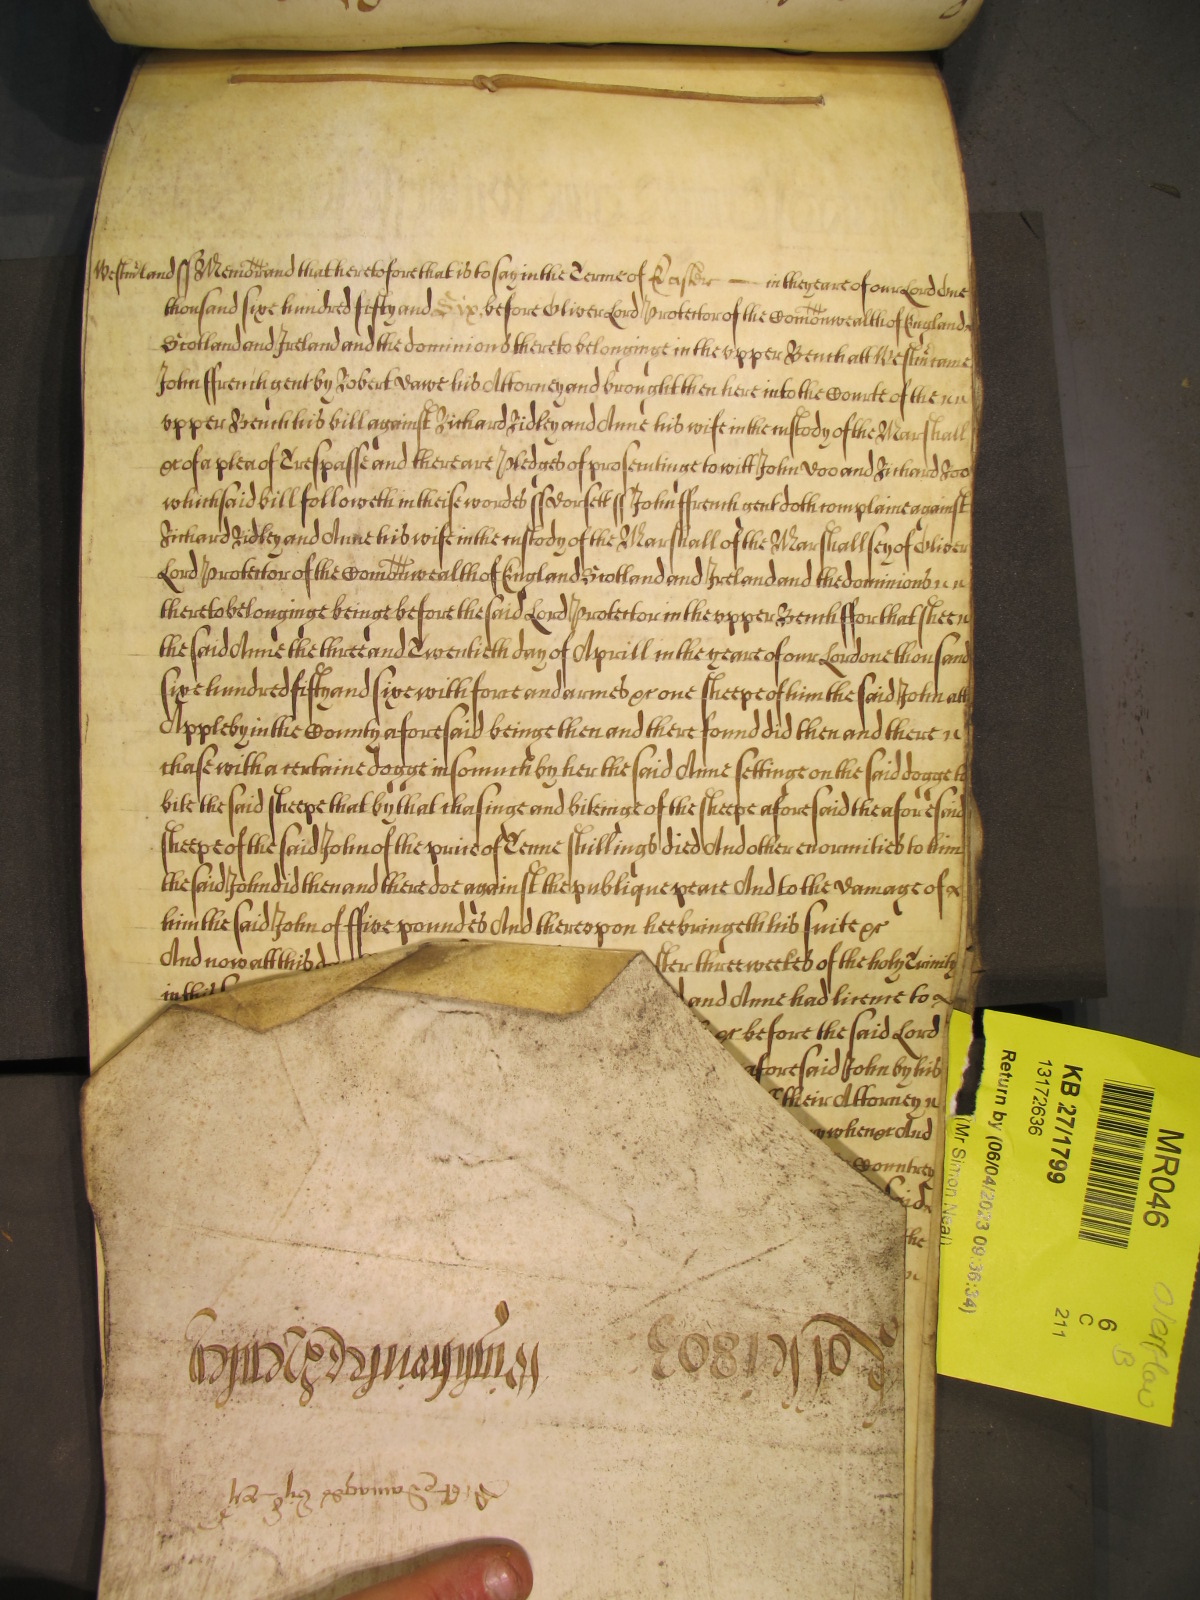 Westmerland ss Memorand that heretofore that is to say in the Terme of Easter in the yeare of our Lord One
thousand sixe hundred fifty and Six before Oliver Lord Protector of the Comonwealth of England
Scotland and Ireland and the dominions thereto belonginge in the upper Bench att Westm came
John ffrench gent by Robert Dawe his Attorney and brought then here into the Courte of the
upper Bench his bill against Richard Ridley and Anne his wife in the custody of the Marshall
&c of a plea of Trespasse and there are Pledges of prosecutinge to witt John Doo and Richard Roo
which said bill followeth in theise wordes ss Dorsett ss John ffrench gent doth complaine against
Richard Ridley and Anne his wife in the custody of the Marshall of the Marshallsey of Oliver
Lord Protector of the Comonwealth of England Scotland and Ireland and the dominions
thereto belonginge beinge before the said Lord Protector in the upper Bench ffor that shee
the said Anne the three and Twentieth day of Aprill in the yeare of our Lord one thousand
sixe hundred fifty and sixe with force and armes &c one sheepe of him the said John att
Appleby in the County aforesaid beinge then and there found did then and there
chase with a certaine dogge insomuch by her the said Anne settinge on the said dogge to
bite the said sheepe that by that chasinge and biteinge of the sheepe aforesaid the aforesaid
sheepe of the said John of the price of Tenne shillings died And other enormities to him
the said John did then and there doe against the publique peace And to the damage of
him the said John of ffive poundes And thereupon hee bringeth his suite &c
And now att this d ter three weekes of the holy Trinity
in this and Anne had licence to
&c before the said Lord
aforesaid John by his
their Attorney
when &c And
Countrey
said
the
Rolle 1803
MR046
KB 27/1799
13172636
Return by (06/04/2023 09:36:34)
(Mr Simon Neal)
6
C
211
Overflow
B